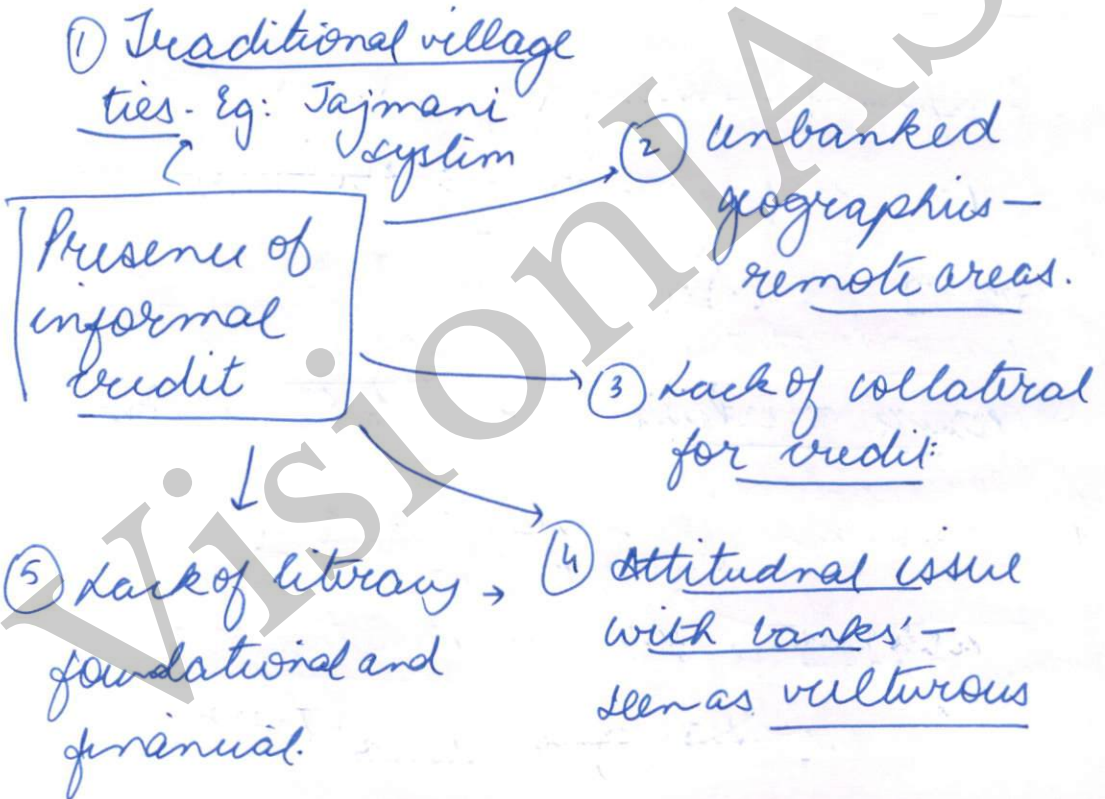 ① Traditional village
ties. Eg: Jajmani
system
Presence of
informal
credit
② Unbanked
geographies –
remote areas.
③ Lack of collateral
for credit.
④ Attitudnal issue
with banks' –
seen as vulturous
⑤ Lack of literacy →
foundational and
financial.
VisionIAS